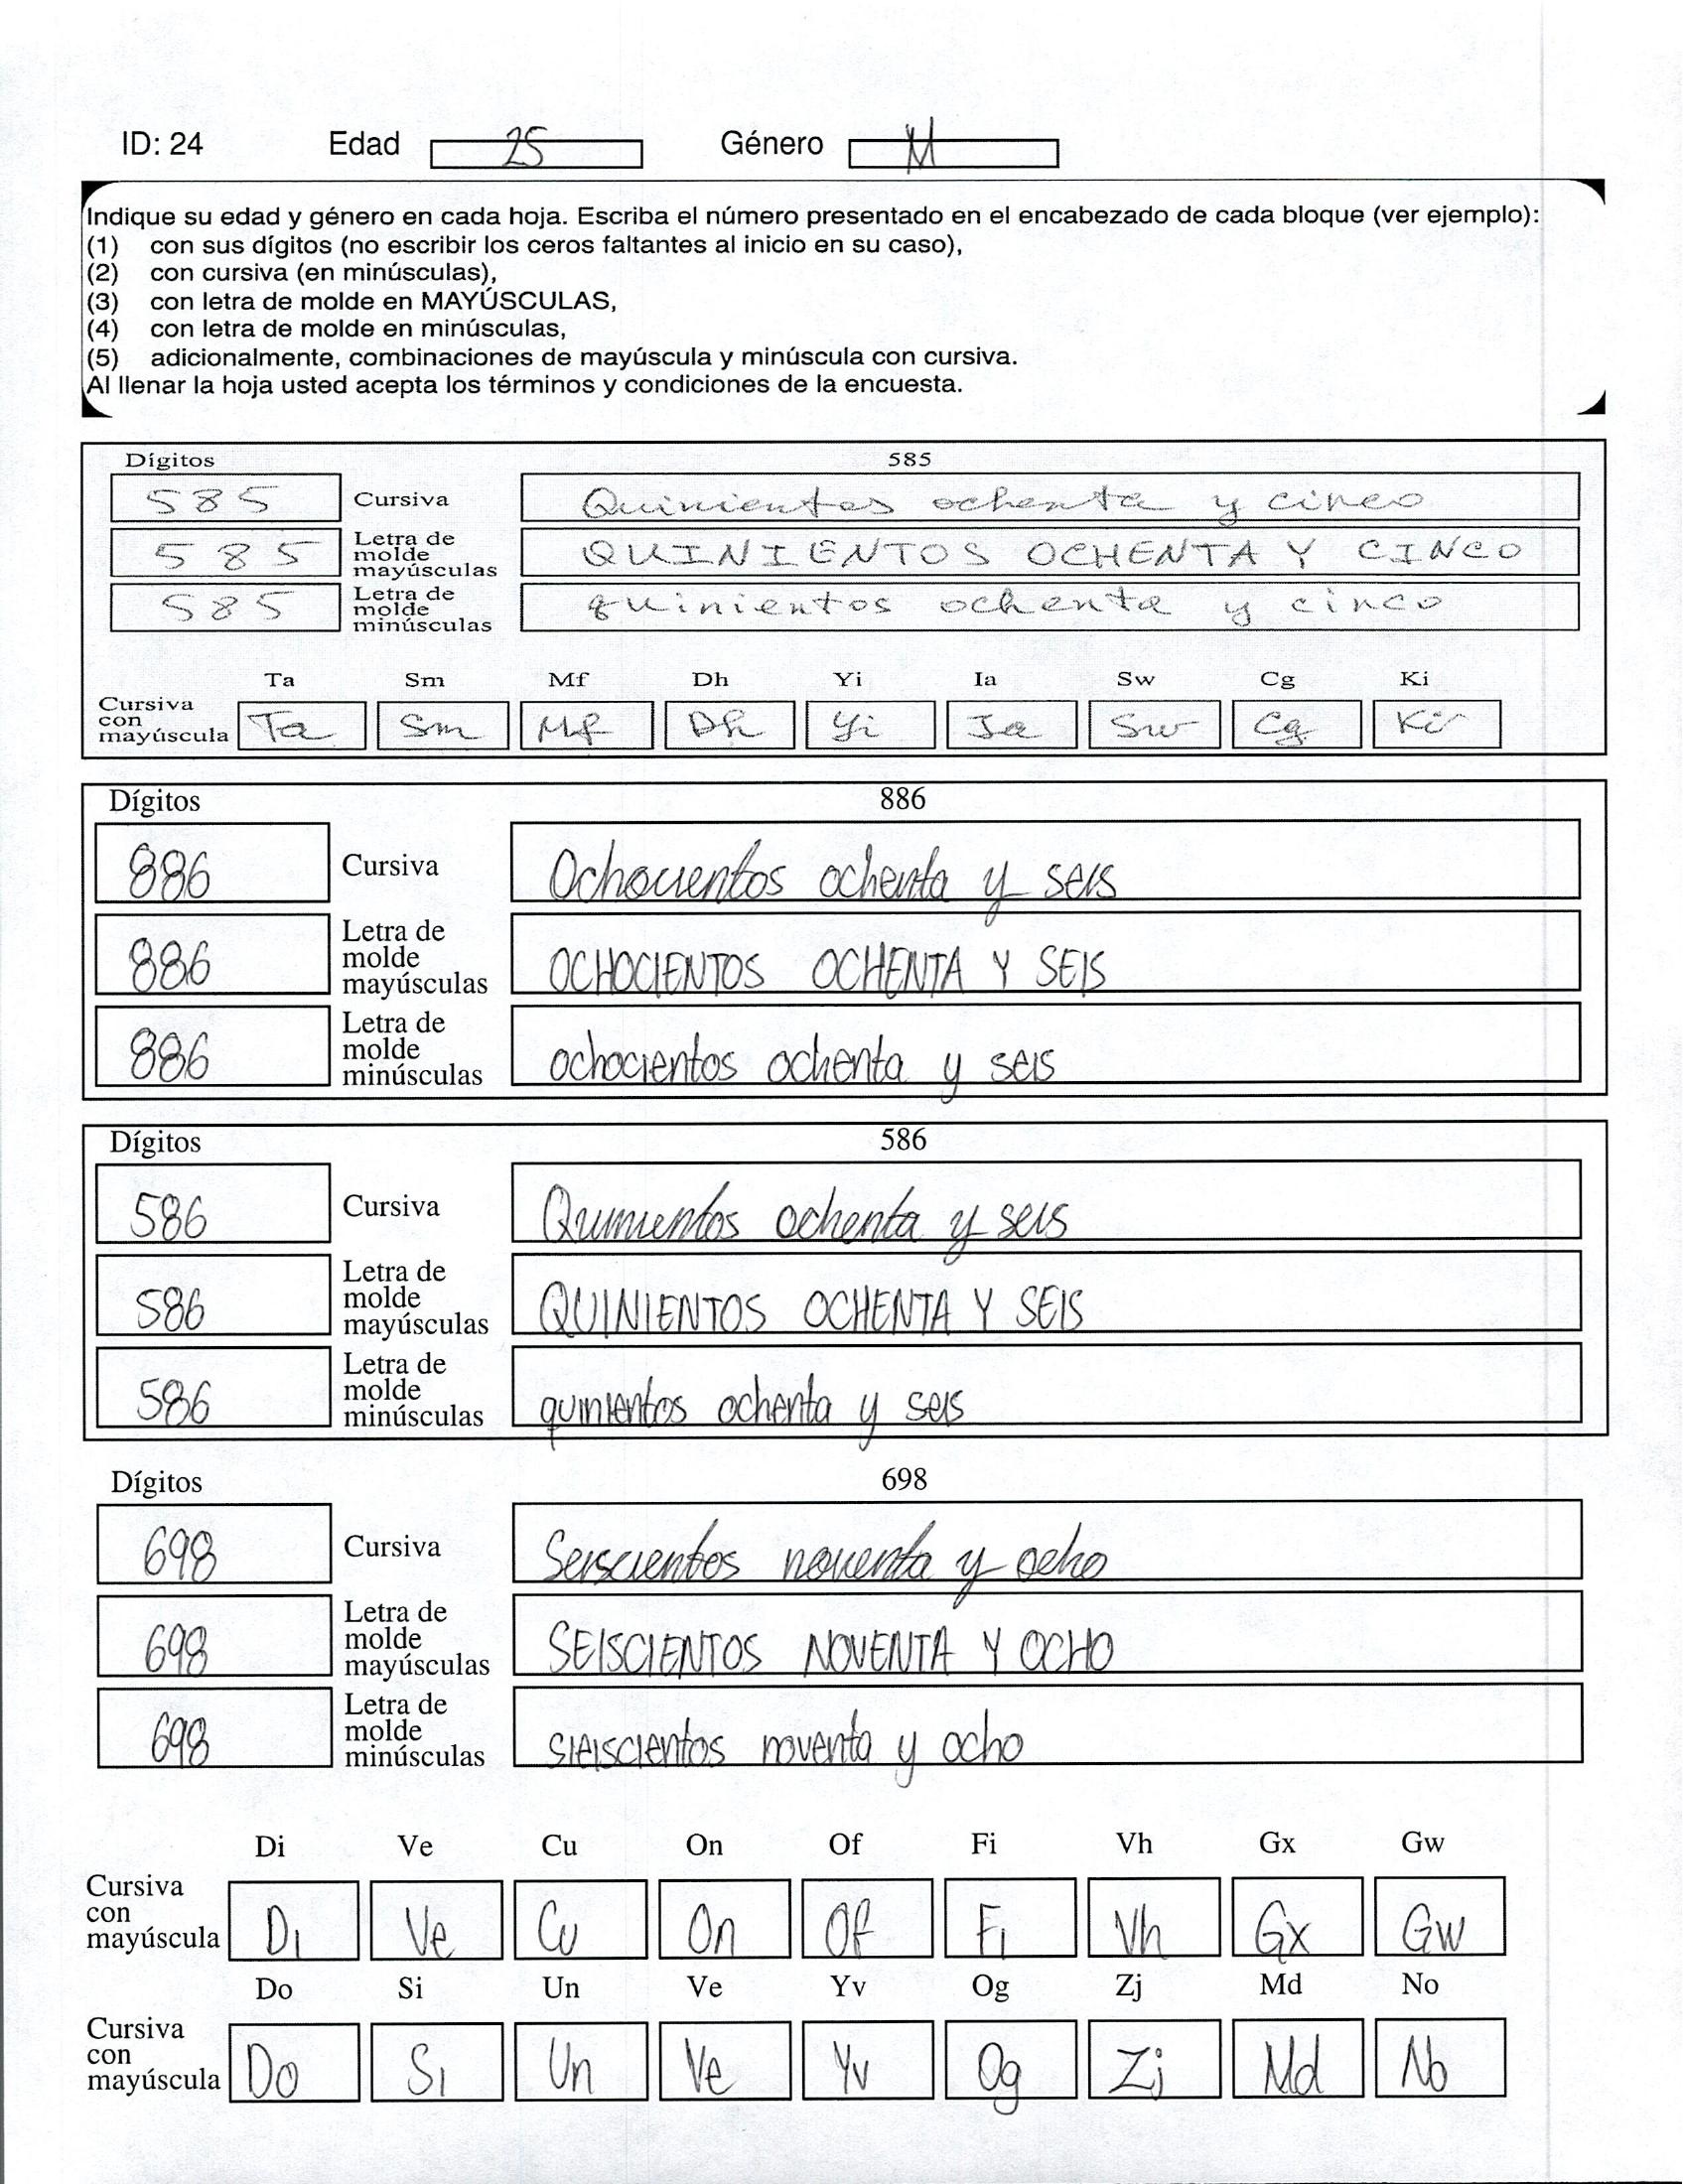 ID: 24 Edad 25 Género M
Indique su edad y género en cada hoja. Escriba el número presentado en el encabezado de cada bloque (ver ejemplo):
(1) con sus dígitos (no escribir los ceros faltantes al inicio en su caso),
(2) con cursiva (en minúsculas),
(3) con letra de molde en MAYÚSCULAS,
(4) con letra de molde en minúsculas,
(5) adicionalmente, combinaciones de mayúscula y minúscula con cursiva.
Al llenar la hoja usted acepta los términos y condiciones de la encuesta.
Dígitos 585
585 Cursiva Quinientos ochenta y cinco
585 Letra de molde mayúsculas QUINIENTOS OCHENTA Y CINCO
585 Letra de molde minúsculas quinientos ochenta y cinco
Ta Sm Mf Dh Yi Ia Sw Cg Ki
Cursiva con mayúscula Ta Sm Mf Dh Yi Ia Sw Cg Ki
Dígitos 886
886 Cursiva Ochocientos ochenta y seis
886 Letra de molde mayúsculas OCHOCIENTOS OCHENTA Y SEIS
886 Letra de molde minúsculas ochocientos ochenta y seis
Dígitos 586
586 Cursiva Quinientos ochenta y seis
586 Letra de molde mayúsculas QUINIENTOS OCHENTA Y SEIS
586 Letra de molde minúsculas quinientos ochenta y seis
Dígitos 698
698 Cursiva Seiscientos noventa y ocho
698 Letra de molde mayúsculas SEISCIENTOS NOVENTA Y OCHO
698 Letra de molde minúsculas sieiscientos noventa y ocho
Di Ve Cu On Of Fi Vh Gx Gw
Cursiva con mayúscula Di Ve Cu On Of Fi Vh Gx Gw
Do Si Un Ve Yv Og Zj Md No
Cursiva con mayúscula Do Si Un Ve Yv Og Zj Md No